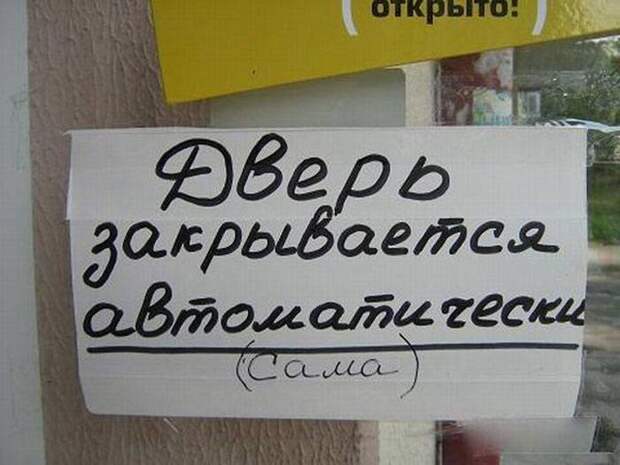 (открыто!)
Дверь
закрывается
автоматически
(сама)